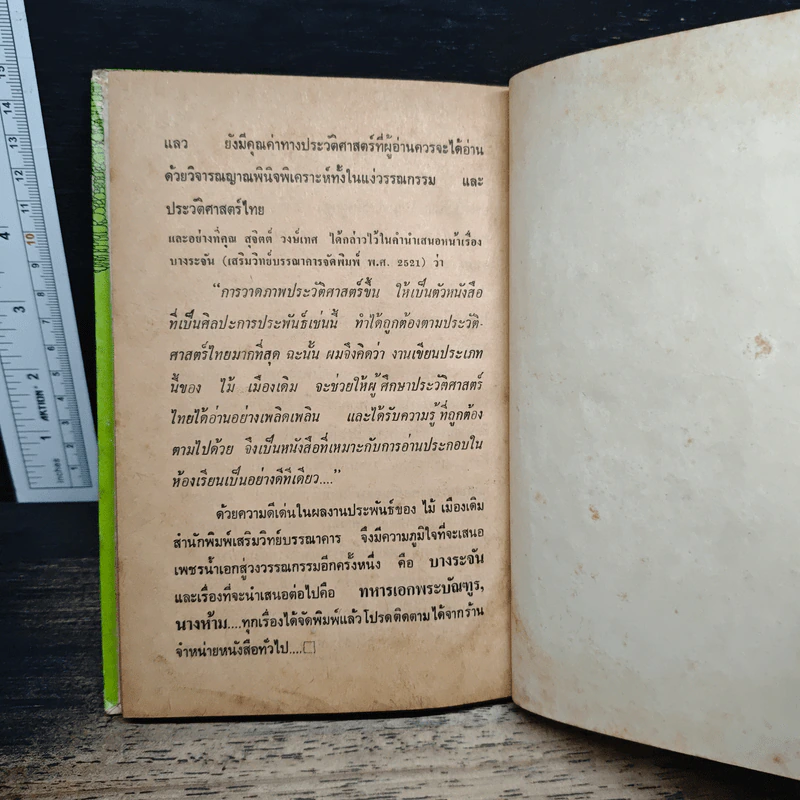 แลว ยังมีคุณค่าทางประวัติศาสตร์ที่ผู้อ่านควรจะได้อ่าน
ด้วยวิจารณญาณพินิจพิเคราะห์ทั้งในแง่วรรณกรรม และ
ประวัติศาสตร์ไทย
และอย่างที่คุณ สุจิตต์ วงษ์เทศ ได้กล่าวไว้ในคำนำเสนอหน้าเรื่อง
บางระจัน (เสริมวิทย์บรรณาการจัดพิมพ์ พ.ศ. 2521) ว่า
“การวาดภาพประวัติศาสตร์ขึ้น ให้เป็นตัวหนังสือ
ที่เป็นศิลปะการประพันธ์เช่นนี้ ทำได้ถูกต้องตามประวัติ-
ศาสตร์ไทยมากที่สุด ฉะนั้น ผมจึงคิดว่า งานเขียนประเภท
นี้ของ ไม้ เมืองเดิม จะช่วยให้ผู้ศึกษาประวัติศาสตร์
ไทยได้อ่านอย่างเพลิดเพลิน และได้รับความรู้ที่ถูกต้อง
ตามไปด้วย จึงเป็นหนังสือที่เหมาะกับการอ่านประกอบใน
ห้องเรียนเป็นอย่างดีทีเดียว....”
ด้วยความดีเด่นในผลงานประพันธ์ของ ไม้ เมืองเดิม
สำนักพิมพ์เสริมวิทย์บรรณาคาร จึงมีความภูมิใจที่จะเสนอ
เพชรน้ำเอกสู่วงวรรณกรรมอีกครั้งหนึ่ง คือ บางระจัน
และเรื่องที่จะนำเสนอต่อไปคือ ทหารเอกพระบัณฑูร,
นางห้าม....ทุกเรื่องได้จัดพิมพ์แล้วโปรดติดตามได้จากร้าน
จำหน่ายหนังสือทั่วไป....□
15
14
13
12
11
10
9
8
7
6
5
4
3
2
1
4
3
2
1
inches
cm